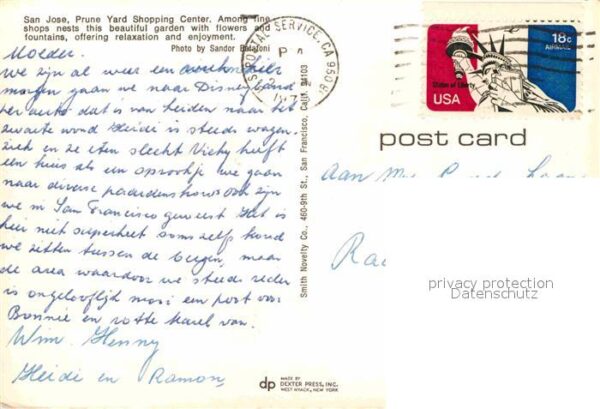 San Jose, Prune Yard Shopping Center. Among fine
shops nests this beautiful garden with flowers and
fountains, offering relaxation and enjoyment.
Photo by Sandor Balatoni
Moeder.
we zijn al weer een
morgen gaan we naar Disneyland
per auto dat is van Leiden naar het
zwarte woud Heidi is steeds wagen-
ziek en ze eten slecht Vichy heeft
een huis als een sprookje we gaan
naar diverse paardenshows ook zijn
we in San Francisco geweest Het is
hier niet superheet soms zelfs koud
we zitten tussen de bergen, maar
de area waardoor we steeds reden
is ongelooflijk mooi een poot voor
Bonnie en rotte Karel van.
Wim Henny
Heidi en Ramon
Smith Novelty Co., 460-9th St., San Francisco, Calif. 94103
POSTAL SERVICE, CA 950
18c
AIRMAIL
Statue of Liberty
USA
post card
Aan
privacy protection
Datenschutz
dp
MADE BY
DEXTER PRESS, INC.
WEST NYACK, NEW YORK